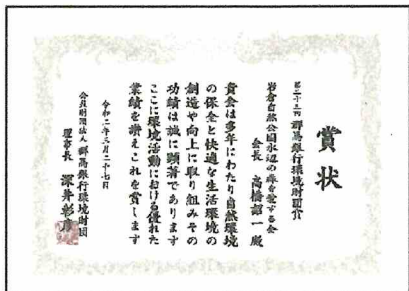 賞状
第二十三回 群馬銀行環境財団賞
岩倉自然公園水辺の森を愛する会
会長 高橋
一殿
貴会は多年にわたり自然環境
の保全と快適な生活環境の
創造や向上に取り組みその
功績は誠に顕著であります
ここに環境活動における優れた
業績を讃えこれを賞します
令和二年三月二十七日
公益財団法人 群馬銀行環境財団
理事長 深井彰彦